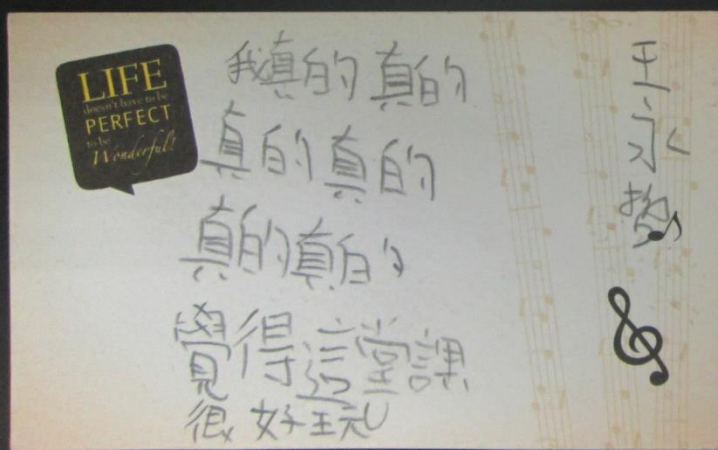 LIFE
doesn't have to be
PERFECT
to be
Wonderful!
我真的真的
真的真的
真的真的
覺得這堂課
很好玩
王永